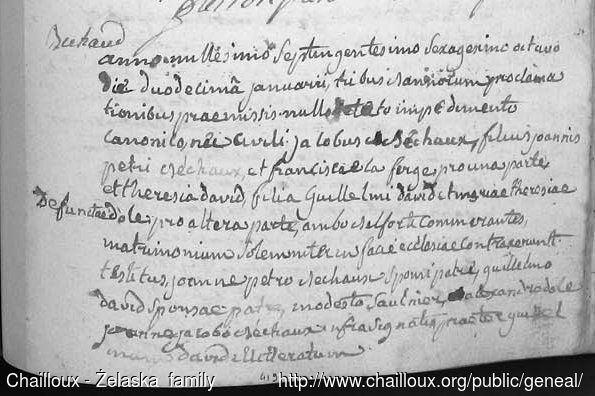 Bechaud
anno millesimo septingentesimo sexagesimo octavo
die duodecimâ januarii, tribus bannorum proclama
tionibus praemissis nullo detecto impedimento
canonico, nec civili jacobus Bechaux, filius joannis
petri Bechaux, et franciscae la ferge pro una parte
et theresia david, filia Guillelmi david et mariae theresiae
Defunctae dole pro altera parte, ambo commorantes,
matrimonium solemniter in facie ecclesiae contraxerunt
testibus, joanne petro Bechaux sponsi patre, guillelmo
david sponsae patre, modesto Saulnier, alexandro dole
joanne jacobo Bechaux infra signatis praeter
david illitteratum
Chailloux - Żelaska family http://www.chailloux.org/public/geneal/